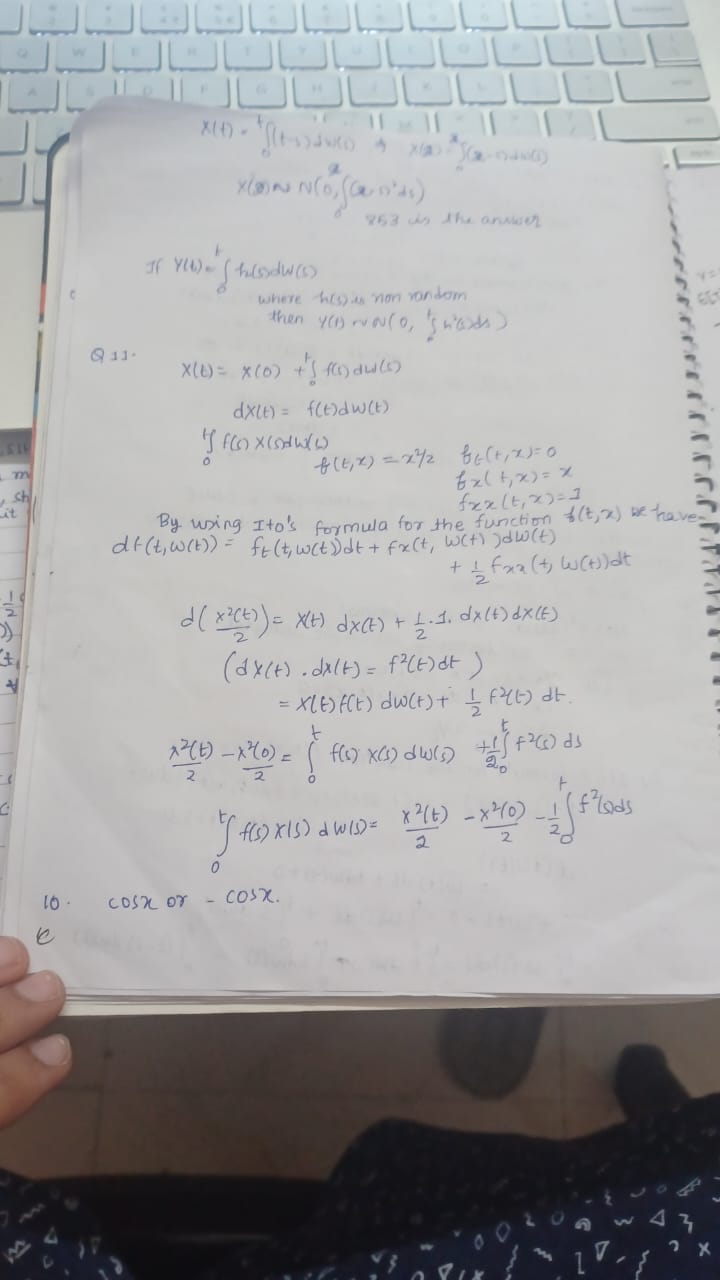 X(t) = ∫₀ᵗ (t-s) dW(s)
If Y(t) = ∫₀ᵗ h(s)dW(s)
where h(s) is non random
then Y(t) ~ N(0, ∫₀ᵗ h²(s)ds)
Q 11.
X(t) = X(0) + ∫₀ᵗ f(s)dW(s)
dX(t) = f(t)dW(t)
∫₀ᵗ f(s) X(s)dW(s)
f(t,x) = x²/2 ft(t,x)=0
fx(t,x)= x
fxx(t,x)=1
By using Ito's formula for the function f(t,x) we have
df(t,W(t)) = ft(t,W(t))dt + fx(t, W(t))dW(t)
+ 1/2 fxx(t, W(t))dt
d(X²(t)/2) = X(t) dX(t) + 1/2 . 1. dX(t) dX(t)
(dX(t) . dX(t) = f²(t)dt )
= X(t)f(t) dW(t) + 1/2 f²(t) dt.
X²(t)/2 - X²(0)/2 = ∫₀ᵗ f(s) X(s) dW(s) + 1/2 ∫₀ᵗ f²(s) ds
∫₀ᵗ f(s) X(s) dW(s) = X²(t)/2 - X²(0)/2 - 1/2 ∫₀ᵗ f²(s)ds
10. cosx or - cosx.